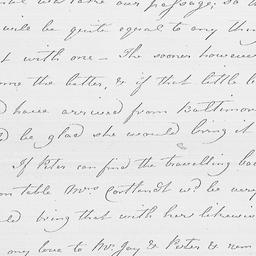 our passage; so
will be quite equal to any
t with one – The sooner however
me the better, & if that little
d have arrived from Baltimore
d be glad she would bring it
If Peter can find the travelling
on table Mrs Cortlandt wd be very
ld bring that with her likewise
my love to Mrs Jay & Peter & rem